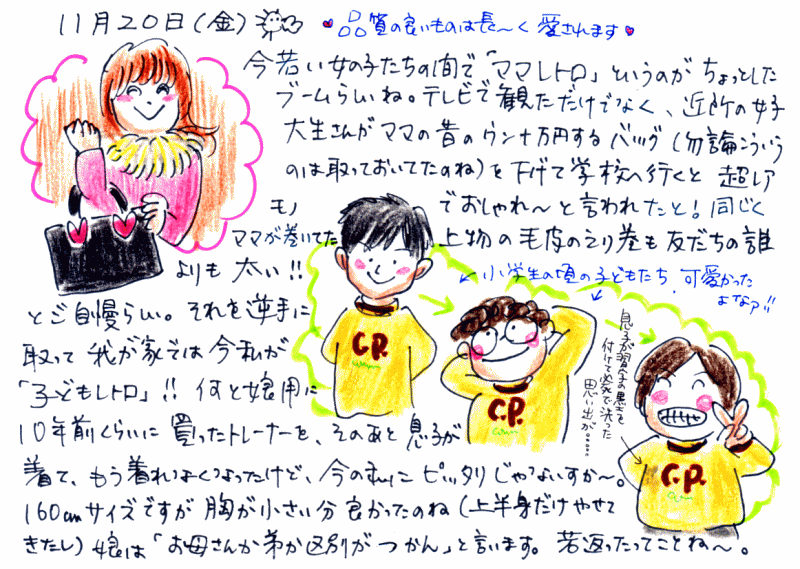 11月20日(金)
品質の良いものは長〜く愛されます
今若い女の子たちの間で「ママレトロ」というのがちょっとした
ブームらしいね。テレビで観ただけでなく、近所の女子
大生さんがママの昔のウン十万円するバッグ(勿論こういう
のは取っておいてたのね)を下げて学校へ行くと超レア
モノでおしゃれ〜と言われたと!同じく
ママが巻いてた上物の毛皮のえり巻も友だちの誰
よりも太い!!
とご自慢らしい。それを逆手に
取って我が家では今私が
「子どもレトロ」!!何と娘用に
10年前くらいに買ったトレーナーを、そのあと息子が
着て、もう着れなくなったけど、今の私にピッタリじゃないすか〜。
160cmサイズですが胸が小さい分良かったのね(上半身だけやせて
きたし)娘は「お母さんか弟か区別がつかん」と言います。若返ったってことね〜。
←小学生の頃の子どもたち、可愛かった
よなァ!!
息子が習字の墨を
付けて必死で洗った
思い出が……
C.P.
C.P.
C.P.